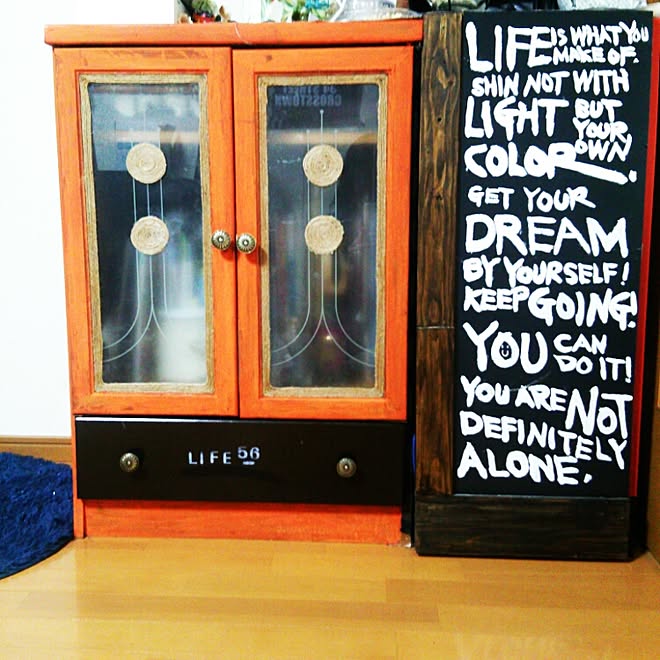 34 STREET
CROSSTOWN
LIFE 56
LIFE IS WHAT YOU
MAKE OF.
SHIN NOT WITH
LIGHT BUT
YOUR
OWN
COLOR.
GET YOUR
DREAM
BY YOURSELF!
KEEP GOING!
YOU CAN
DO IT!
YOU ARE NOT
DEFINITELY
ALONE.